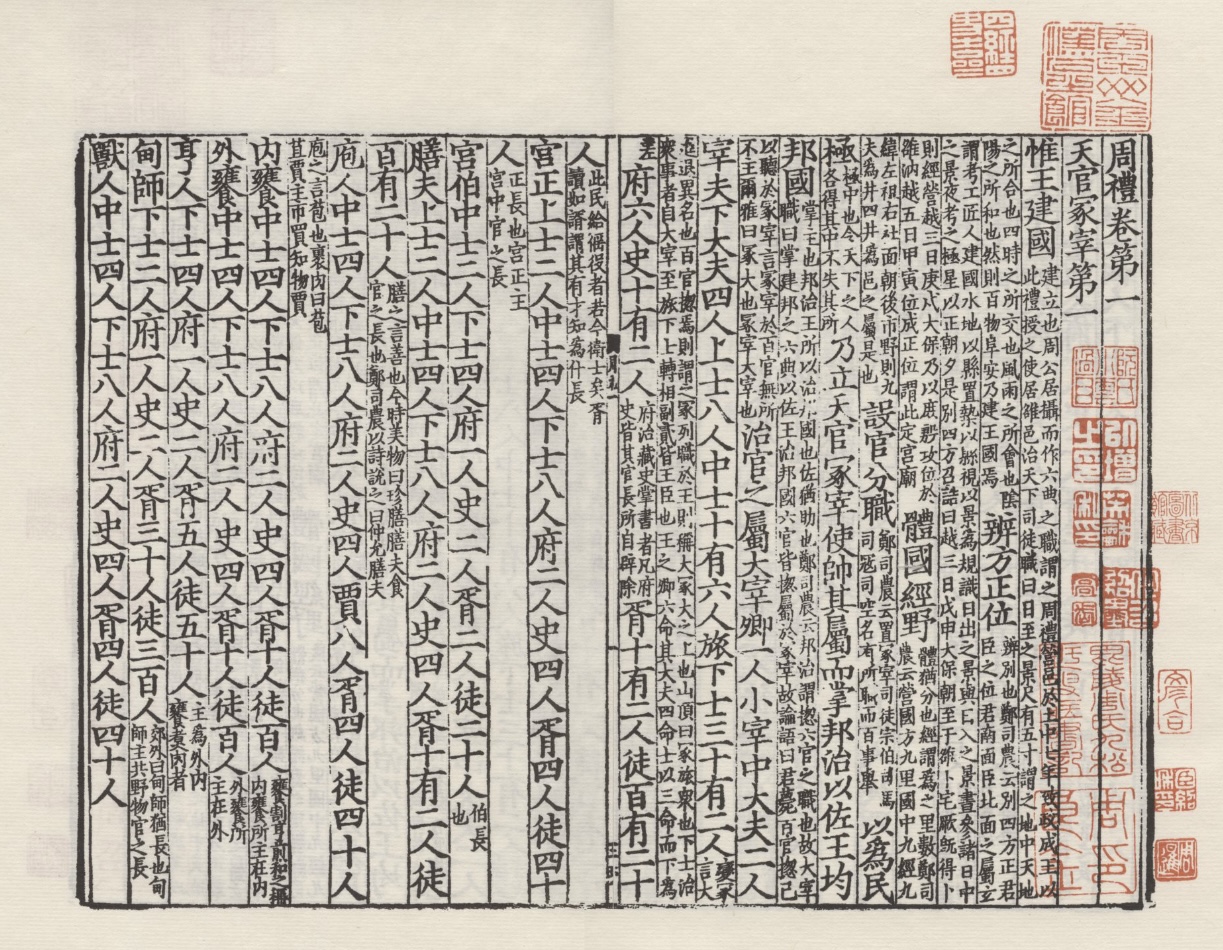 周禮卷第一
天官冢宰第一
惟王建國建立也周公居攝而作六典之職謂之周禮營邑於土中七年致政成王以此禮授之使居雒邑治天下司徒職曰日至之景尺有五寸謂之地中天地
之所合也四時之所交也風雨之所會也陰陽之所和也然則百物阜安乃建王國焉辨方正位辨別也鄭司農云別四方正君臣之位君南面臣北面之屬玄
謂考工匠人建國水地以縣置槷以縣視以景為規識日出之景與日入之景晝參諸日中之景夜考之極星以正朝夕是別四方召誥曰越三日戊申大保朝至于雒卜宅厥既得卜
則經營越三日庚戌大保乃以庶殷攻位於雒汭越五日甲寅位成正位謂此定宮廟體國經野體猶分也經謂為之里數鄭司農云營國方九里國中九經九
緯左祖右社面朝後市野則九夫為井四井為邑之屬是也設官分職鄭司農云置冢宰司徒宗伯司馬司寇司空各有所職而百事舉以為民
極極中也令天下之人各得其中不失其所乃立天官冢宰使帥其屬而掌邦治以佐王均
邦國掌主也邦治王所以治邦國也佐猶助也鄭司農云邦治謂揔六官之職也故大宰職曰掌建邦之六典以佐王治邦國六官皆揔屬於冢宰故論語曰君薨百官揔己
以聽於冢宰言冢宰於百官無所不主爾雅曰冢大也冢宰大宰也治官之屬大宰卿一人小宰中大夫二人
宰夫下大夫四人上士八人中士十有六人旅下士三十有二人變冢言大
進退異名也百官揔焉則謂之冢列職於王則稱大冢大之上也山頂曰冢旅衆也下士治衆事者自大宰至旅下士轉相副貳皆王臣也王之卿六命其大夫四命士以三命而下為
差府六人史十有二人府治藏史掌書者凡府史皆其官長所自辟除胥十有二人徒百有二十
人此民給徭役者若今衛士矣胥讀如諝謂其有才知為什長
宮正上士二人中士四人下士八人府二人史四人胥四人徒四十
人正長也宮正主宮中官之長
宮伯中士二人下士四人府一人史二人胥二人徒二十人伯長也
膳夫上士二人中士四人下士八人府二人史四人胥十有二人徒
百有二十人膳之言善也今時美物曰珍膳膳夫食官之長也鄭司農以詩說之曰仲允膳夫
庖人中士四人下士八人府二人史四人賈八人胥四人徒四十人
庖之言苞也裹肉曰苞苴賈主市買知物賈
内饔中士四人下士八人府二人史四人胥十人徒百人饔割亨煎和之稱内饔所主在内
外饔中士四人下士八人府二人史四人胥十人徒百人外饔所主在外
亨人下士四人府一人史二人胥五人徒五十人主為外内饔煑肉者
甸師下士二人府一人史二人胥三十人徒三百人郊外曰甸師猶長也甸師主共野物官之長
獸人中士四人下士八人府二人史四人胥四人徒四十人